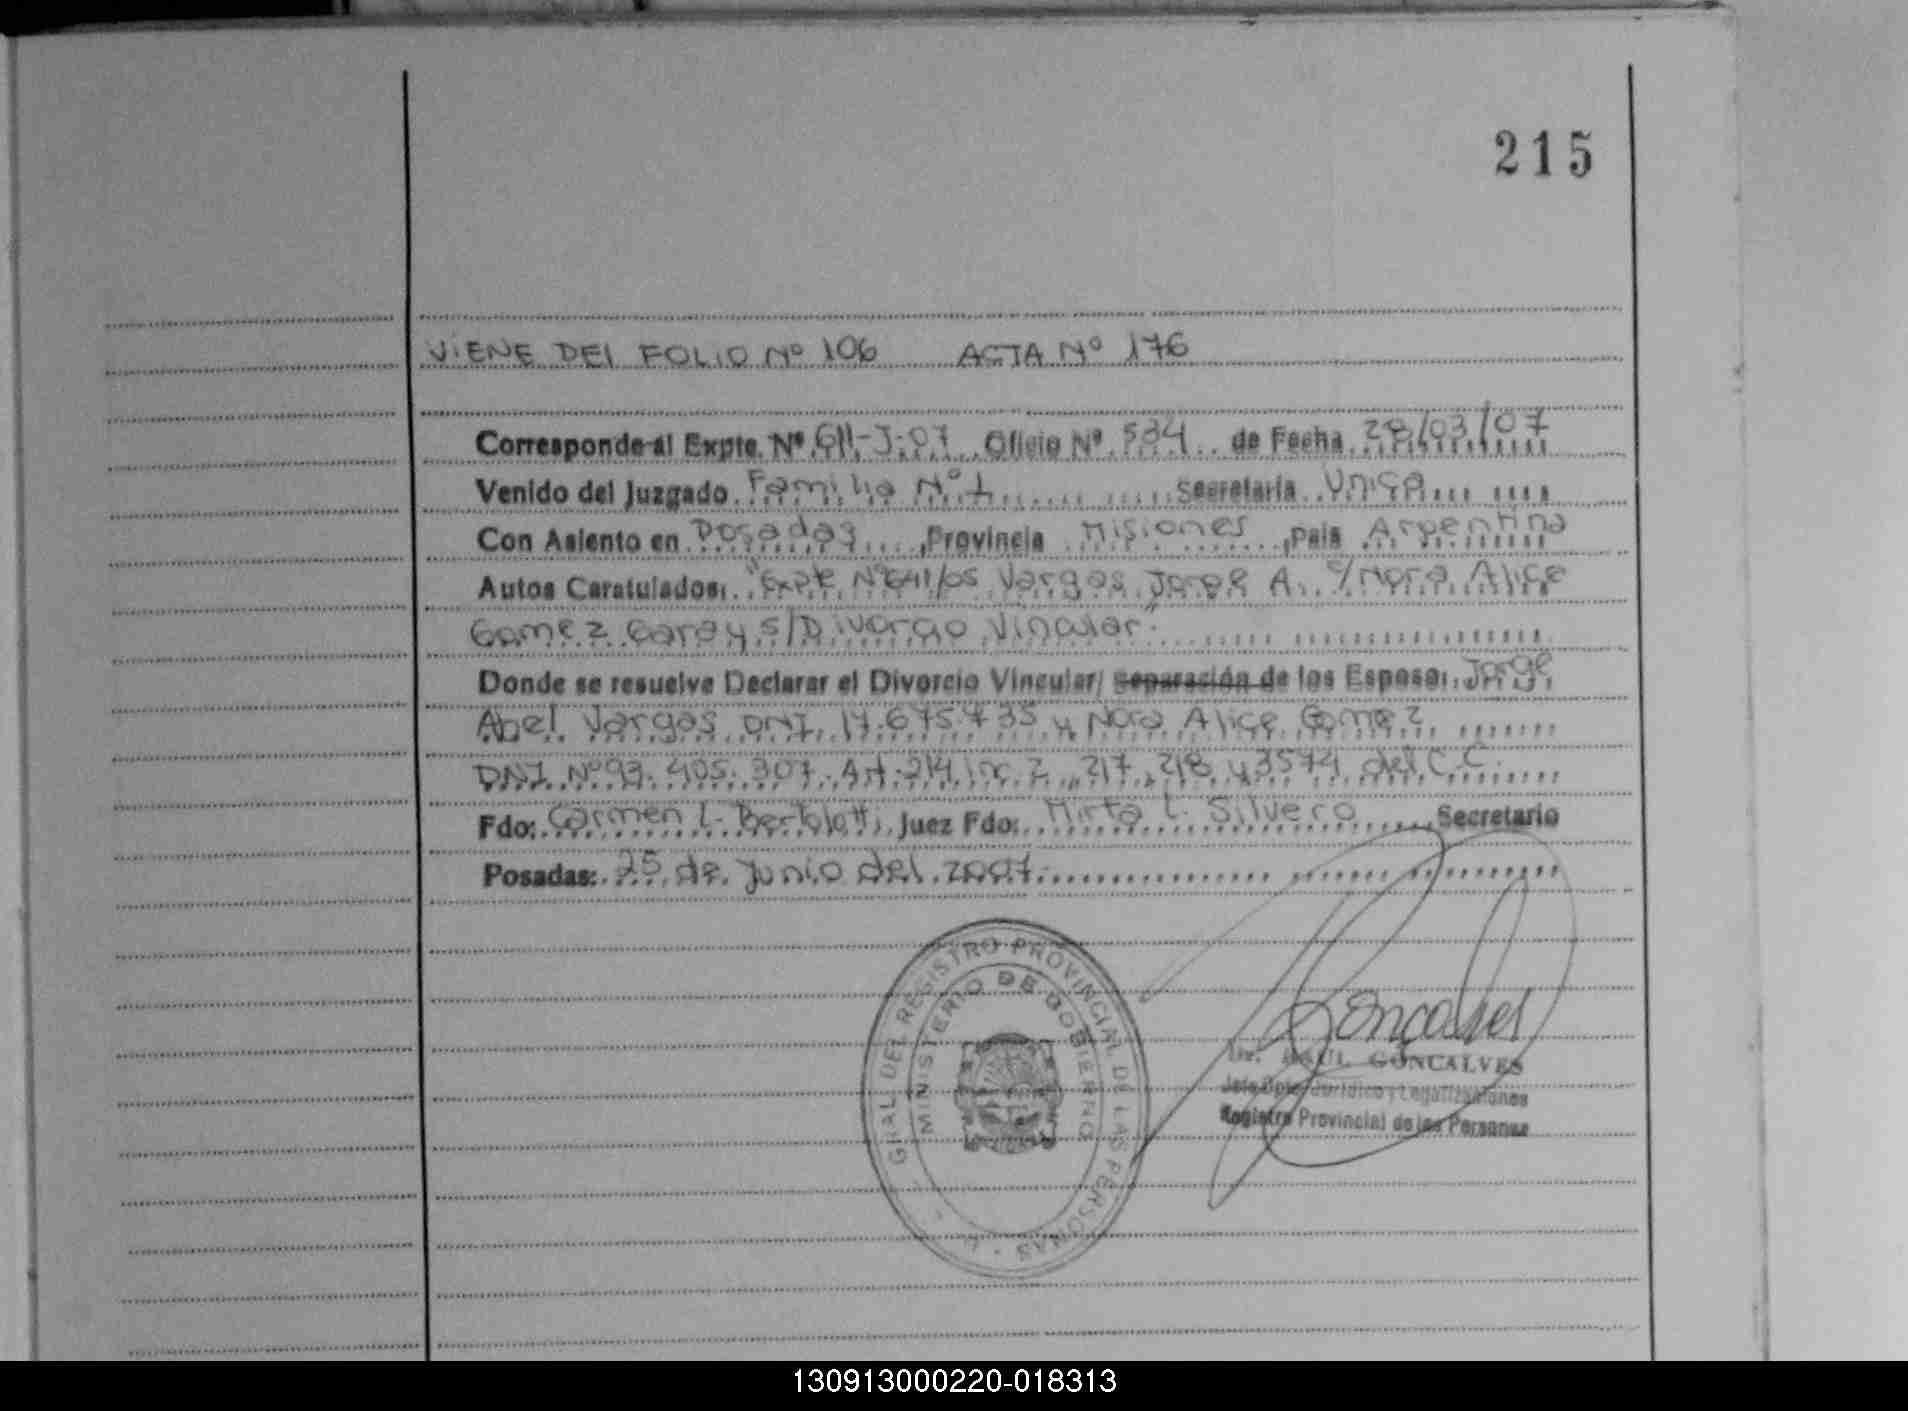 215
VIENE DEL FOLIO Nº 106 ACTA Nº 176
Corresponde al Expte. Nº 611-J-07 Oficio Nº 534 de Fecha 28/03/07
Venido del Juzgado Familia Nº 1 Secretaría Unica
Con Asiento en Posadas, Provincia Misiones, País Argentina
Autos Caratulados: "Expte Nº 641/05 Vargas Jorge A. c/ Nora Alice
Gomez Garay s/Divorcio Vincular"
Donde se resuelve Declarar el Divorcio Vincular/ Separación de los Esposo: Jorge
Abel Vargas DNI 17.675.735 y Nora Alice Gomez
DNI Nº 93.405.307. Art. 214 inc 2, 217, 218 y 3574 del C.C.
Fdo: Carmen L. Bertolotti, Juez Fdo: Mirta L. Silvero Secretario
Posadas: 25 de Junio del 2007.
GRAL DEL REGISTRO PROVINCIAL DE LAS PERSONAS
MINISTERIO DE GOBIERNO
Goncalves
Lic. RAUL GONCALVES
Jefe Dpto. Jurídico y Legalizaciones
Registro Provincial de las Personas
130913000220-018313